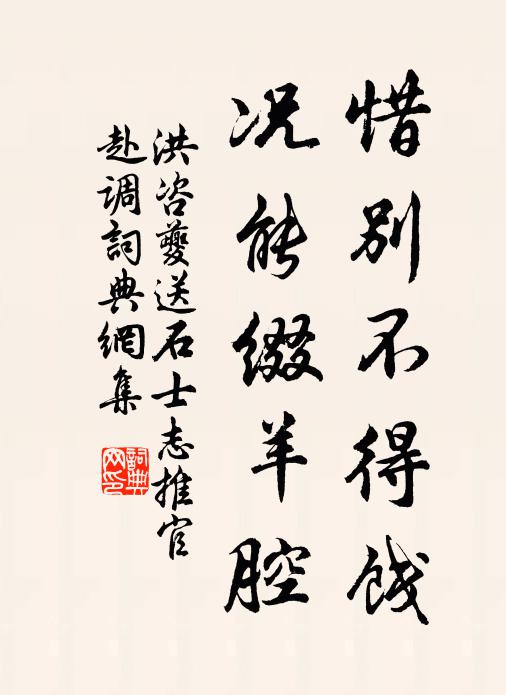 惜别不得饯
况能缀羊腔
洪咨夔送石士志推官
赴调詞典網集
詞典网印